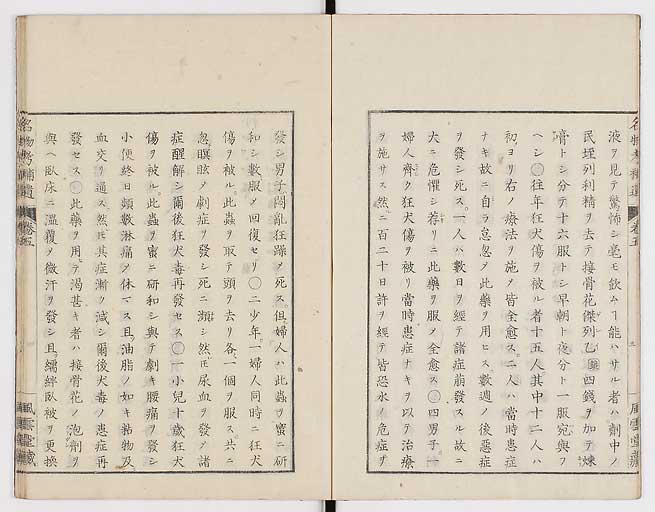 液ヲ見テ驚怖シ毫モ飲ムヿ能ハサル者ハ劑中ノ
民垤列利精ヲ去テ接骨花傑列乙四錢ヲ加テ煉
膏トシ分テ十六服トシ早朝ト夜分ト一服宛與フ
ヘシ〇往年狂犬傷ヲ被ル者十五人其中十二人ハ
初ヨリ右ノ療法ヲ施メ皆全愈ス二人ハ當時患症
ナキ故ニ自ラ怠忽メ此藥ヲ用ヒス數週ノ後惡症
ヲ發シ死ス一人ハ數日ヲ經テ諸症萠發スル故ニ
大ニ危懼シ荐リニ此藥ヲ服メ全愈ス〇四男子一
婦人齊ク狂犬傷ヲ被リ當時患症ナキヲ以テ治療
ヲ施サス然ニ百二十日許ヲ經テ皆恐水ノ危症ヲ
發シ男子悶亂狂躁メ死ス但婦人ハ此蟲ヲ蜜ニ研
和シ數服メ回復セリ〇二少年一婦人同時ニ狂犬
傷ヲ被ル此蟲ヲ取テ頭ヲ去リ各一個ヲ服ス共ニ
忽瞑眩メ劇症ヲ發シ死ニ瀕シ然𪜈尿血ヲ發メ諸
症醒解シ爾後狂犬毒再發セス〇一小兒十歳狂犬
傷ヲ被ル此蟲ヲ蜜ニ研和シ與テ劇キ腰痛ヲ發シ
小便終日頻數淋痛メ休マス且油脂ノ如キ粘物及
血交リ通ス然𪜈其症漸ク減シ爾後犬毒ノ患症再
發セス〇此藥ヲ用テ渇甚キ者ハ接骨花ノ泡劑ヲ
與ヘ臥床ニ温覆メ微汗ヲ發シ且繃絆臥被ヲ更換
名物考補遺 卷五
風雲堂藏